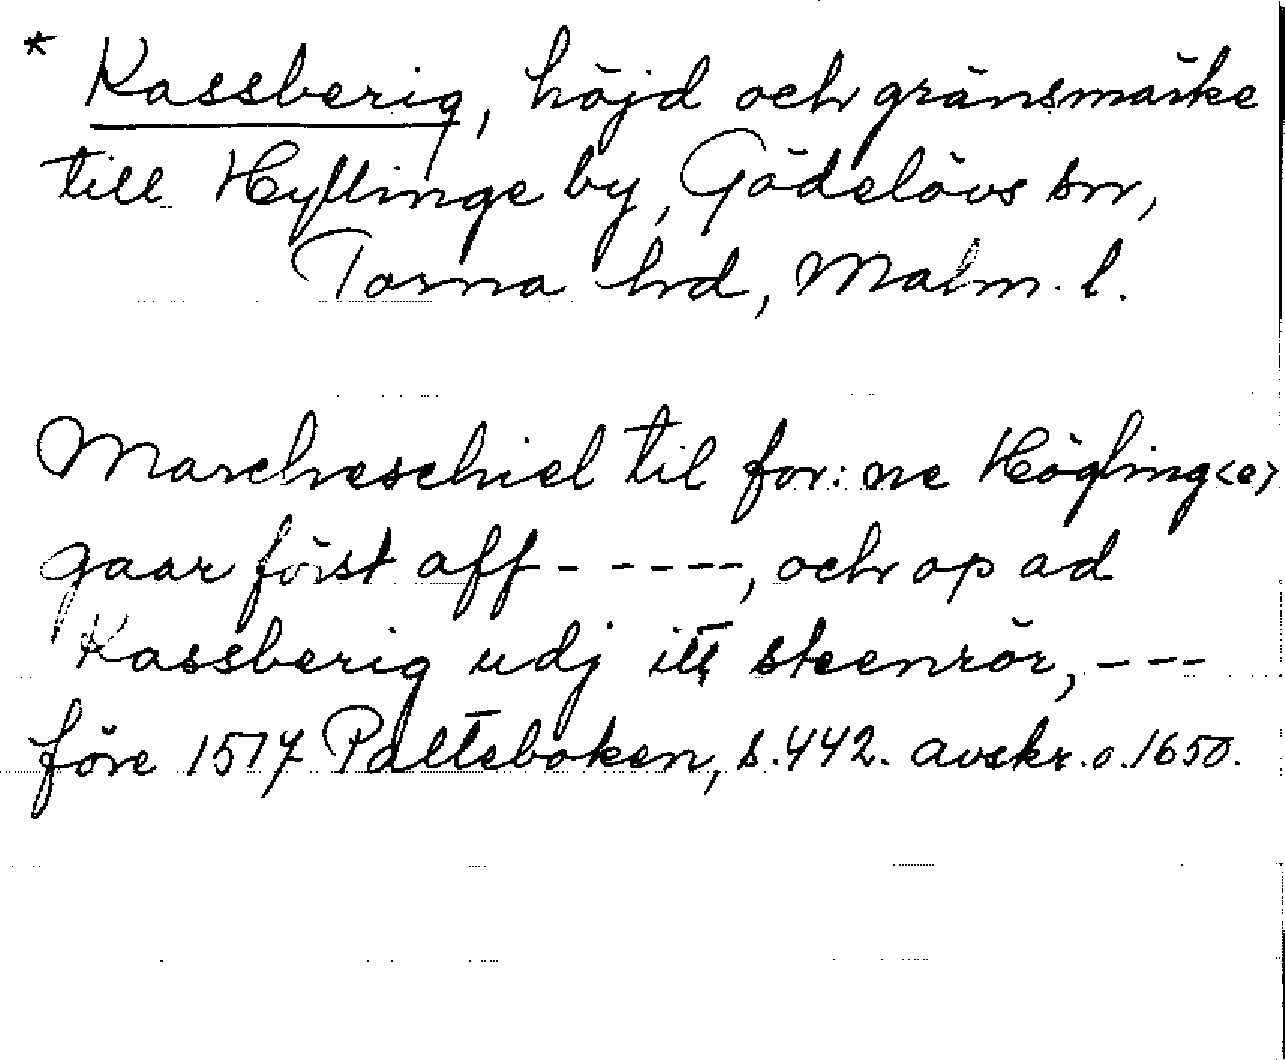 * Kassberig, höjd och gränsmärke
till Hyllinge by, Gödelövs sn,
Torna hd, Malm. l.
Marcheschiel til for: ne Högling<e>
gaar först aff - - - - -, och op ad
Kassberig udj itt steenrör, - - -
före 1517 Palteboken, s. 442. avskr. o. 1650.